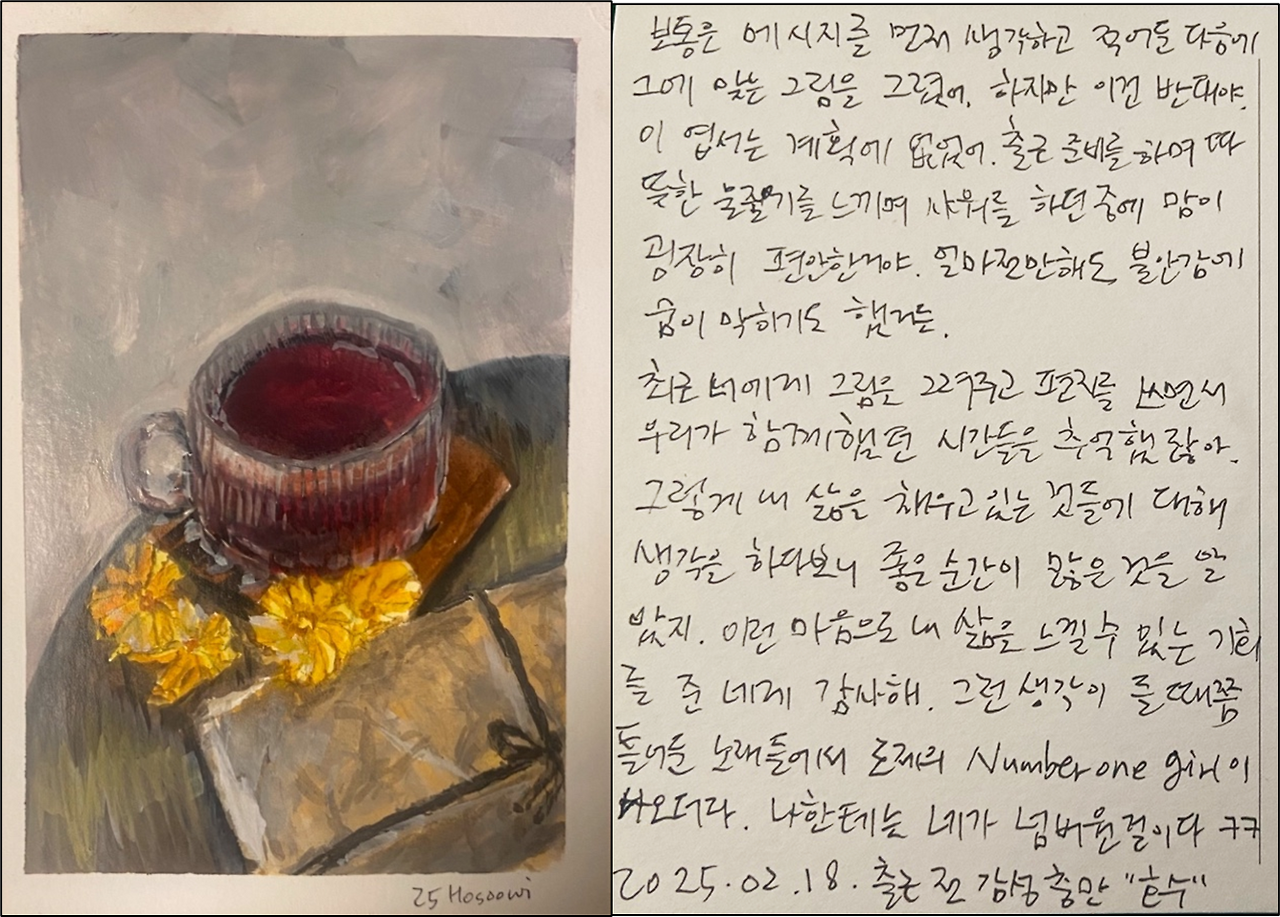 25 Hosoowi
보통은 메시지를 먼저 생각하고 적어둔 다음에
그에 맞는 그림을 그렸어. 하지만 이건 반대야.
이 엽서는 계획에 없었어. 출근 준비를 하며 따
뜻한 물줄기를 느끼며 샤워를 하던 중에 맘이
굉장히 편안한거야. 얼마전만해도 불안감에
숨이 막히기도 했거든.
최근 너에게 그림을 그려주고 편지를 쓰면서
우리가 함께했던 시간들을 추억했잖아.
그렇게 내 삶을 채우고 있는 것들에 대해
생각을 하다보니 좋은 순간이 많은 것을 알
았지. 이런 마음으로 내 삶을 느낄 수 있는 기회
를 준 네게 감사해. 그런 생각이 들 때쯤
틀어둔 노래들에서 로제의 Number one girl이
나오더라. 나한테는 네가 넘버원걸이다 ㅋㅋ
2025.02.18. 출근 전 감성충만 "호수"